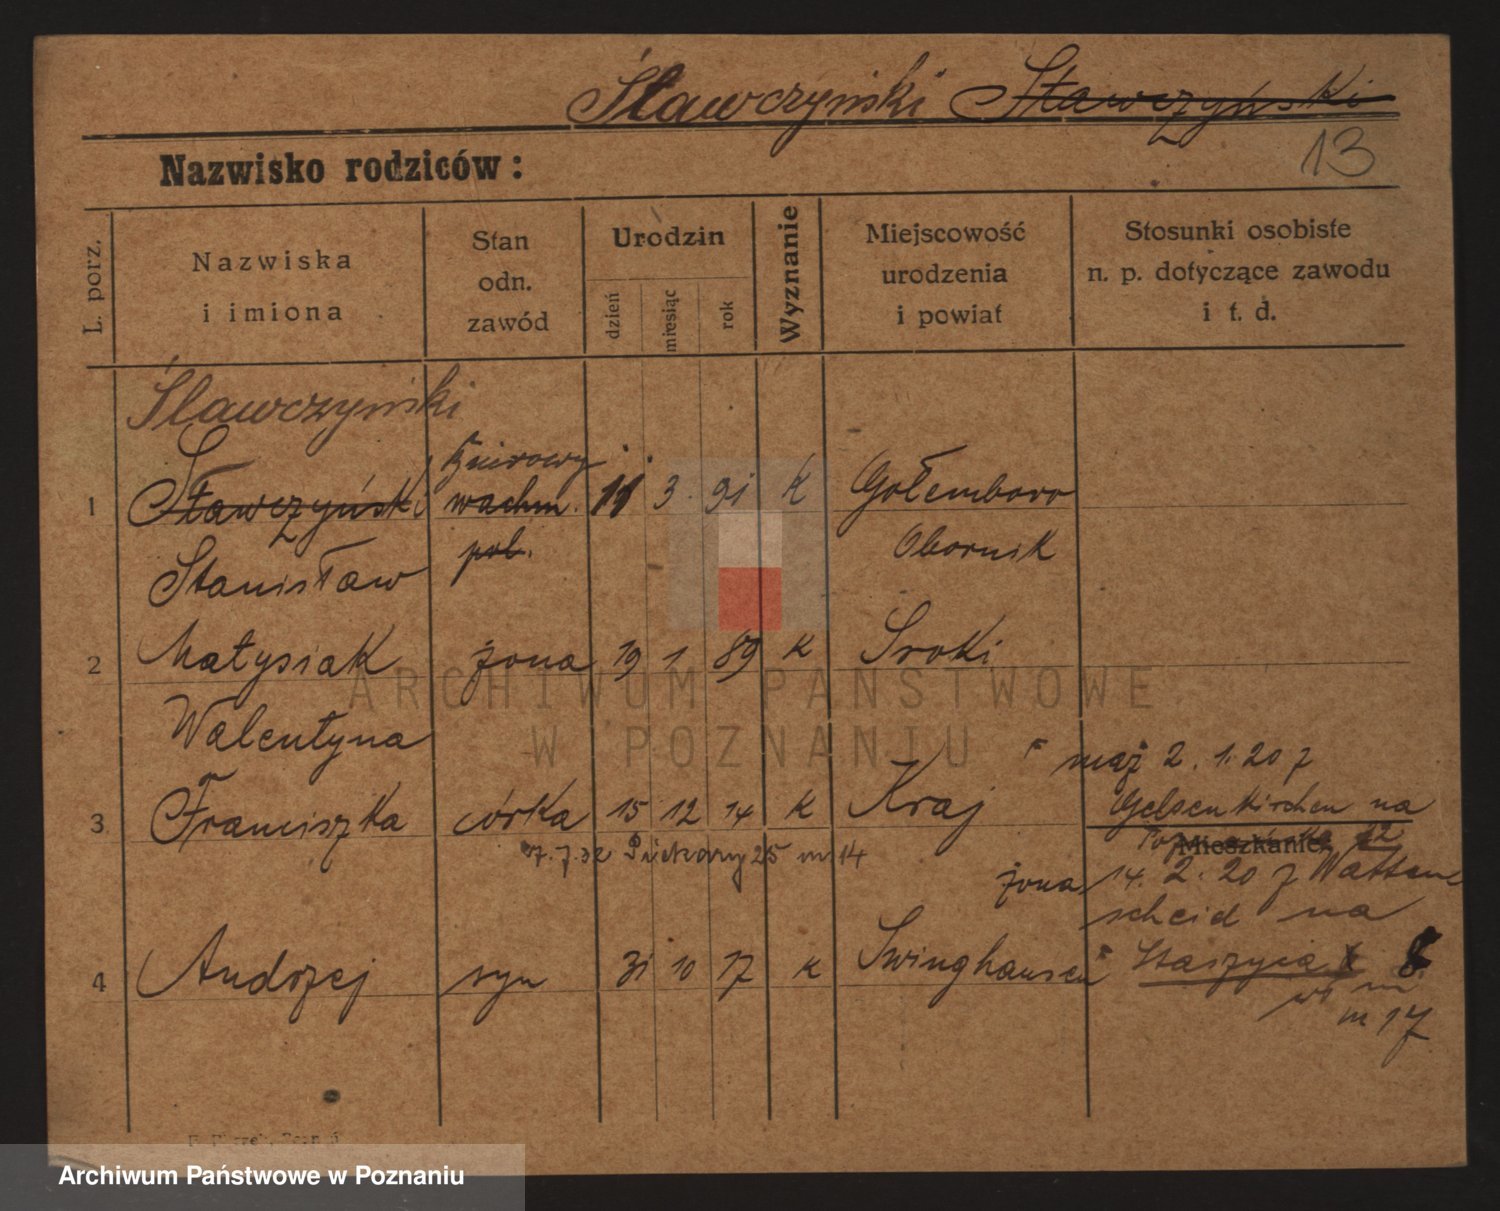 Śławczyński Stawczyński
13
Nazwisko rodziców:
L. porz.
Nazwiska
i imiona
Stan
odn.
zawód
Urodzin
dzień
miesiąc
rok
Wyznanie
Miejscowość
urodzenia
i powiat
Stosunki osobiste
n. p. dotyczące zawodu
i t. d.
Śławczyński
1 Stawczyński wachm. 11 3 91 K Gołemboro
pol. Obornik
Stanisław
2 Matysiak żona 19 1 89 K Sroki
Walentyna
mąż 2. 1. 20 z
3 Franciszka córka 15 12 14 K Kraj Gelsenkirchen na
Mieszkanie: 12
7.7.32 Piekary 25 m 14
żona 14. 2. 20 z Watten
scheid na
4 Andrzej syn 31 10 17 K Swinghausen Staszyca 8
m 17
ARCHIWUM PAŃSTWOWE
W POZNANIU
Archiwum Państwowe w Poznaniu